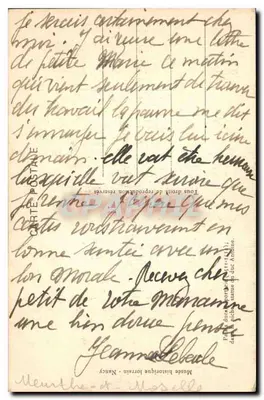 Je serais certainement chez
moi. J'ai reçu une lettre
de petite Marie ce matin
qui vient seulement de trouver
du travail la pauvre me dit
s'ennuyer je vais lui écrire
demain. elle vat être heureuse
lorsqu'elle vat savoir que
je J'espère que mes
cartes vous trouveront en
bonne santée avec un
bon Morale. Recevez cher
petit de votre Marraine
une bien douce pensée
Jeanne
Meurthe-et-Moselle
CARTE POSTALE
Tous droits de reproduction réservés
Musée historique lorrain - Nancy